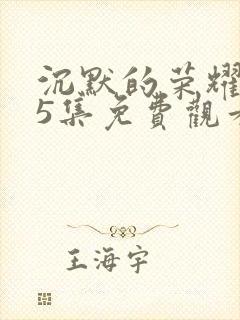 沉默的荣耀
5集免費觀
王海宇